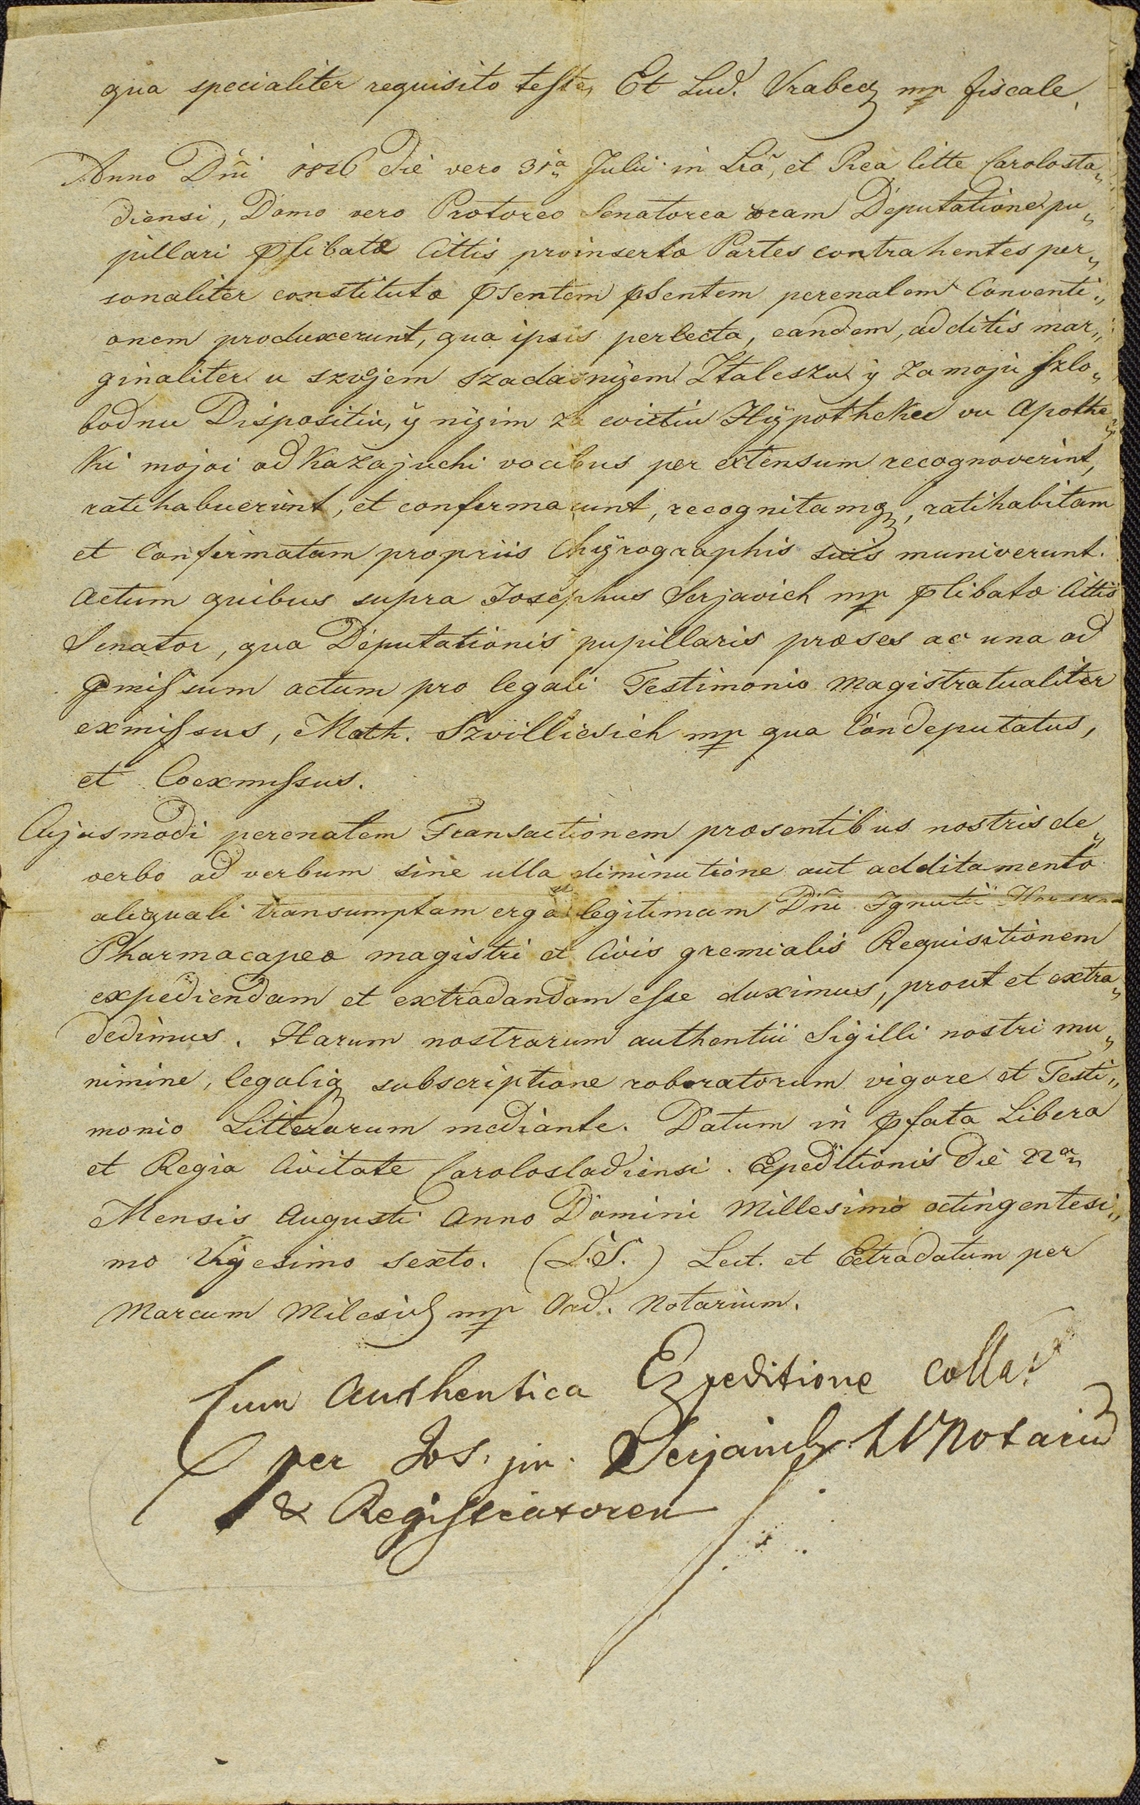 qua specialiter requisito teste, Et Lud. Vrabecz mp fiscale,
Anno Dñi 1826 die vero 31a Julii in Lrã, et Rea Citte Carolosta„
diensi, Domo vero Protoreo Senatorea coram Deputatione pu„
pillari plibatæ Cittis proinserta Partes contrahentes per„
sonaliter constitutæ psentem psentem perenalem Conventi„
onem produxerunt, qua ipsis perlecta, eandem, additis mar„
ginaliter u szvojem szadasnyem Ztaleszu y za moju szlo„
bodnu Dispositiu, y nyim za evictiu Hÿpotheke vu Apothe„
ki mojoi od Kazajuchi vocibus per extensum recognoverint,
ratihabuerunt, et confirmarunt, recognitamq, ratihabitam
et Confirmatam propriis Chÿrographis suis muniverunt.
Actum quibus supra Josephus Serjavich mp plibatæ Cittis
Senator, qua Deputationis pupillaris præses ac una ad
pmissum actum pro legali Testimonio Magistratualiter
exmissus, Math. Szvilliesich mp qua Condeputatus,
et Coexmissus.
Cujusmodi perenalem Transactionem præsentibus nostris de„
verbo ad verbum sine ulla diminutione aut additamento
aliquali transumptam erga legitimam Dñi Ignatii
Pharmacapeæ magistri et Civis gremialis Requisitionem
expediendam et extradandam esse duximus, prout et extra„
dedimus. Harum nostrarum authentici Sigilli nostri mu„
nimine, legaliq subscriptione roboratarum vigore et Testi„
monio Litterarum mediante. Datum in pfata Libera
et Regia Civitate Carolostadiensi. Expeditionis die 22a
Mensis Augusti Anno Domini Millesimo octingentesi„
mo Vigesimo sexto. (L.S.) Lect. et Extradatum per
Marcum Milesich mp Ord. Notarium.
Cum Authentica Expeditione collat
per Jos. jun. Serjavich VNotariu
& Registratorem